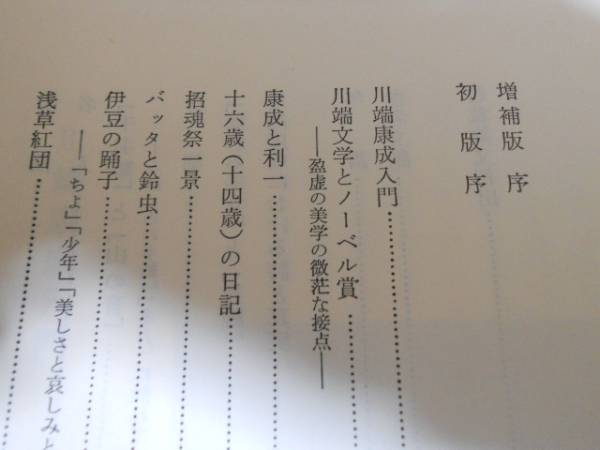 増補版 序
初版 序
川端康成入門
川端文学とノーベル賞
――盈虚の美学の微茫な接点――
康成と利一
十六歳(十四歳)の日記
招魂祭一景
バッタと鈴虫
伊豆の踊子
――「ちよ」「少年」「美しさと哀しみと
浅草紅団